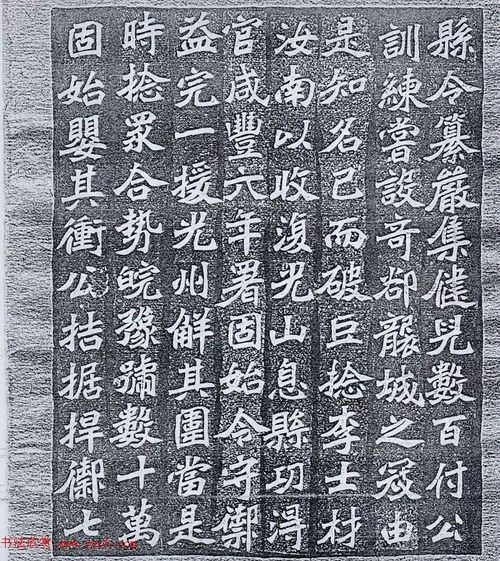 縣令纂嚴集健兒數百付公
訓練嘗設奇卻襲城之寇由
是知名已而破巨捻李士材
汝南以收復光山息縣功得
官咸豐六年署固始令守禦
益完一援光州解其圍當是
時捻眾合勢皖豫號數十萬
固始嬰其衝公拮据捍禦七
书法欣赏